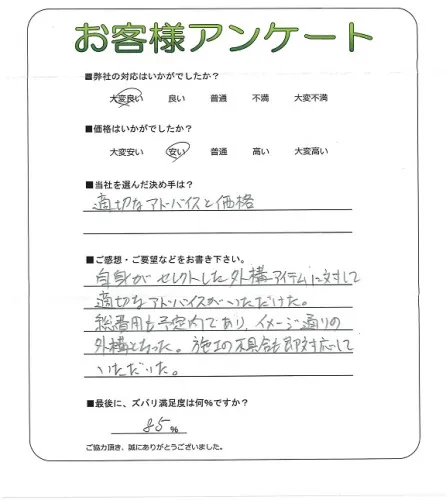 お客様アンケート
■弊社の対応はいかがでしたか？
大変良い 良い 普通 不満 大変不満
■価格はいかがでしたか？
大変安い 安い 普通 高い 大変高い
■当社を選んだ決め手は？
適切なアドバイスと価格
■ご感想・ご要望などをお書き下さい。
自身がセレクトした外構アイテムに対して
適切なアドバイスがいただけた。
総費用も予定内であり、イメージ通りの
外構となった。施工の不具合も即対応して
いただいた。
■最後に、ズバリ満足度は何%ですか？
85%
ご協力頂き、誠にありがとうございました。